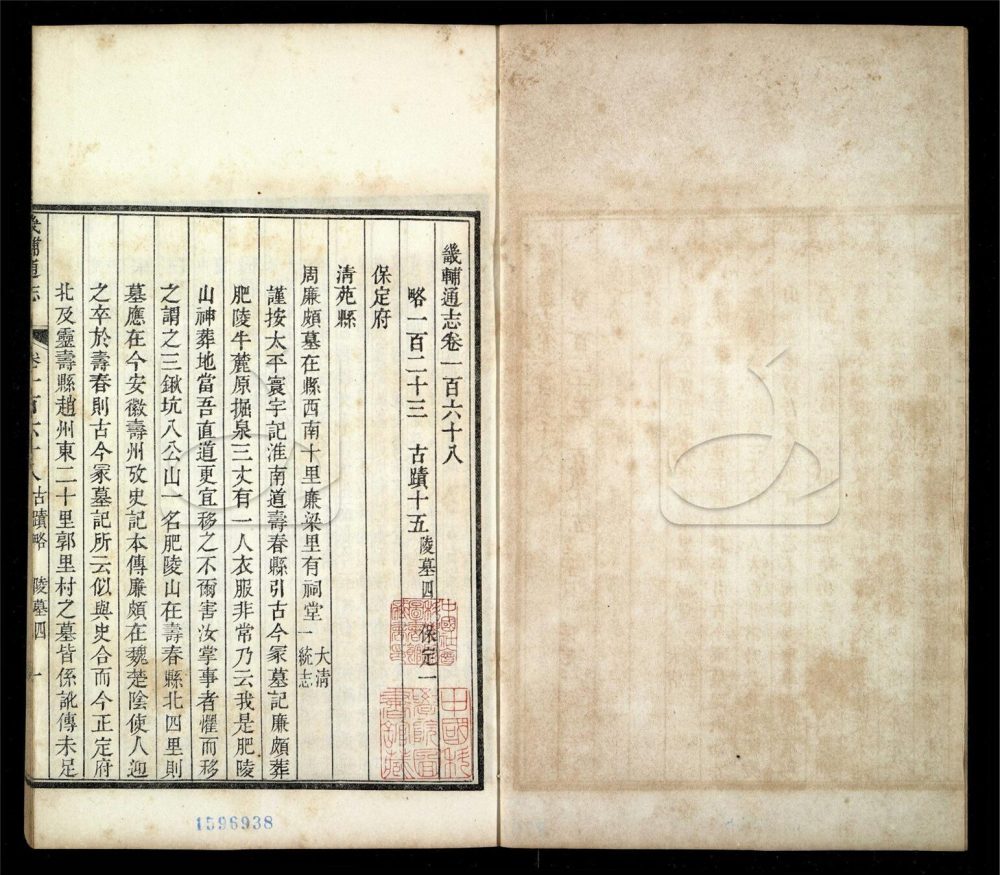 畿輔通志卷一百六十八
略一百二十三　古蹟十五　陵墓四　保定一
保定府
淸苑縣
周廉頗墓在縣西南十里廉梁里有祠堂大淸一統志
謹按太平寰宇記淮南道壽春縣引古今冢墓記廉頗葬
肥陵牛麓原掘泉三丈有一人衣服非常乃云我是肥陵
山神葬地當吾直道更宜移之不爾害汝掌事者懼而移
之謂之三鍬坑八公山一名肥陵山在壽春縣北四里則
墓應在今安徽壽州攷史記本傳廉頗在魏楚陰使人迎
之卒於壽春則古今冢墓記所云似與史合而今正定府
北及靈壽縣趙州東二十里郭里村之墓皆係訛傳未足
畿輔通志　卷一百六十八　古蹟略　陵墓四　一
1596938